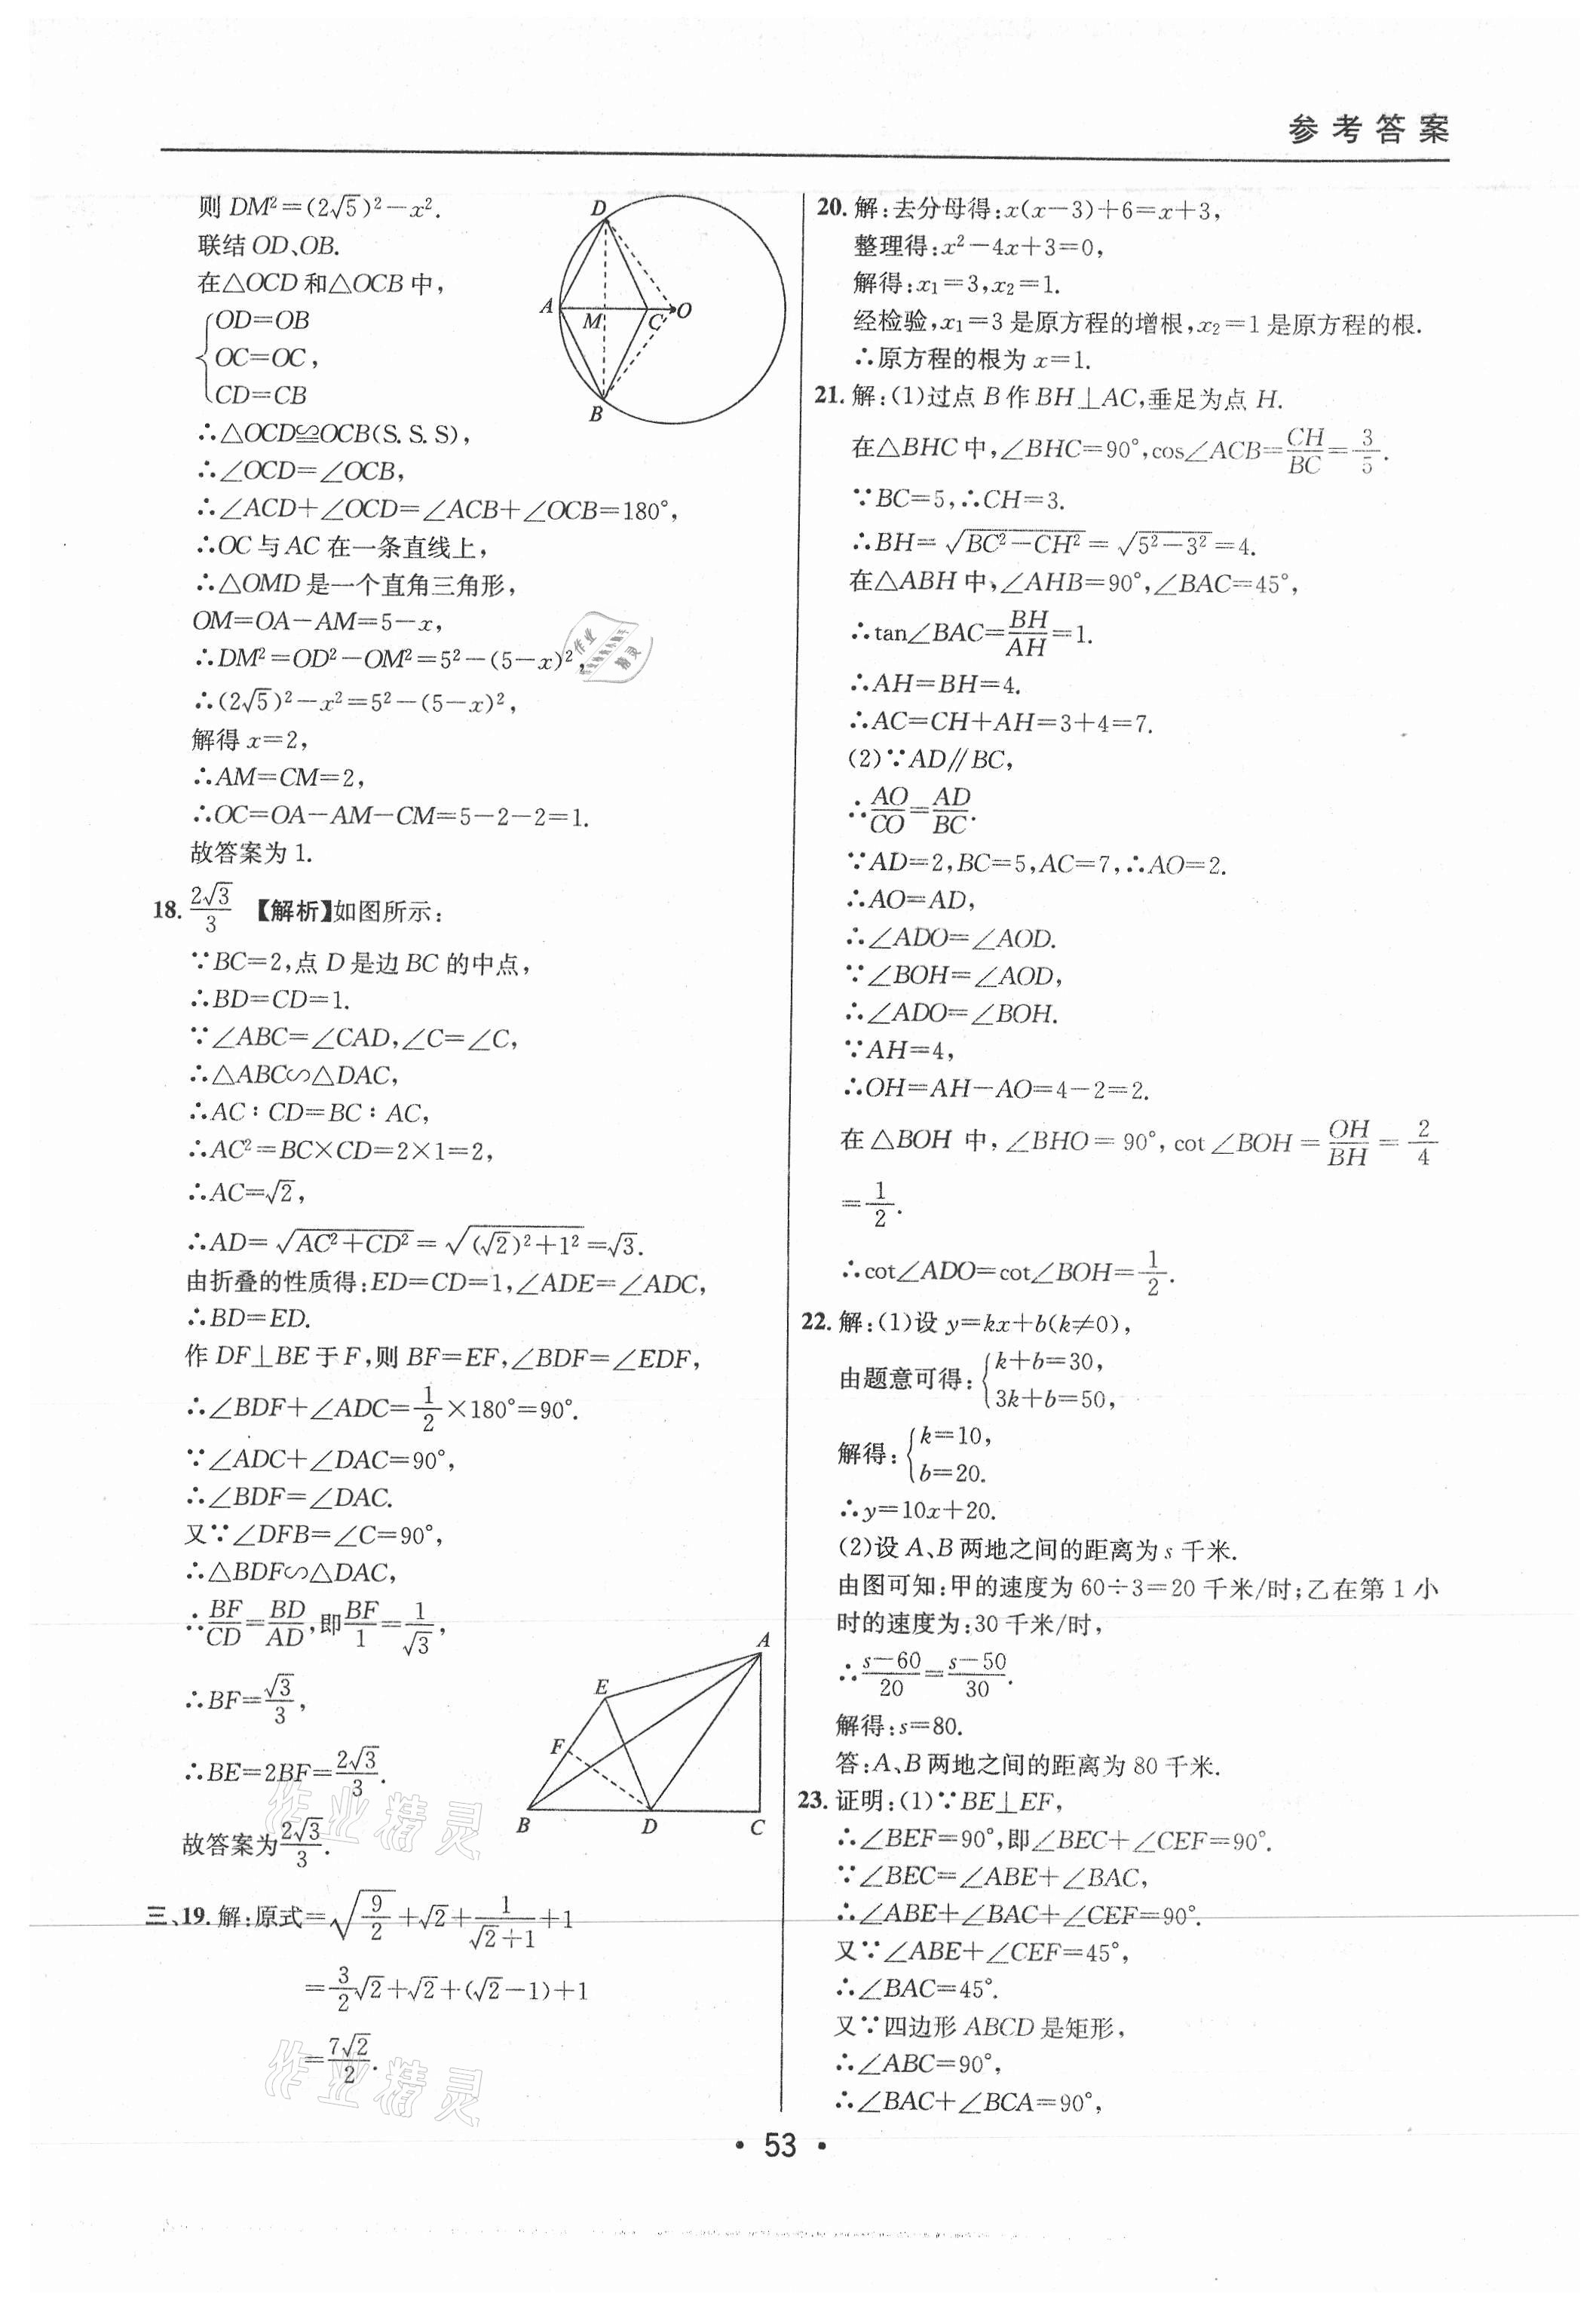 参考答案
则 DM²=(2√5)²-x².
联结 OD、OB.
在△OCD 和△OCB 中,
OD=OB
OC=OC,
CD=CB
∴△OCD≌OCB(S.S.S),
∴∠OCD=∠OCB,
∴∠ACD+∠OCD=∠ACB+∠OCB=180°,
∴OC 与 AC 在一条直线上,
∴△OMD 是一个直角三角形,
OM=OA-AM=5-x,
∴DM²=OD²-OM²=5²-(5-x)²,
∴(2√5)²-x²=5²-(5-x)²,
解得 x=2,
∴AM=CM=2,
∴OC=OA-AM-CM=5-2-2=1.
故答案为 1.
D
A
M
C
O
B
18. 2√3/3 【解析】如图所示:
∵BC=2,点 D 是边 BC 的中点,
∴BD=CD=1.
∵∠ABC=∠CAD,∠C=∠C,
∴△ABC∽△DAC,
∴AC∶CD=BC∶AC,
∴AC²=BC×CD=2×1=2,
∴AC=√2,
∴AD=√(AC²+CD²)=√((√2)²+1²)=√3.
由折叠的性质得:ED=CD=1,∠ADE=∠ADC,
∴BD=ED.
作 DF⊥BE 于 F,则 BF=EF,∠BDF=∠EDF,
∴∠BDF+∠ADC=1/2×180°=90°.
∵∠ADC+∠DAC=90°,
∴∠BDF=∠DAC.
又∵∠DFB=∠C=90°,
∴△BDF∽△DAC,
∴BF/CD=BD/AD,即BF/1=1/√3,
∴BF=√3/3,
∴BE=2BF=2√3/3.
故答案为2√3/3.
A
E
F
B
D
C
三、19. 解:原式=√(9/2)+√2+1/(√2+1)+1
=3/2√2+√2+(√2-1)+1
=7√2/2.
20. 解:去分母得:x(x-3)+6=x+3,
整理得:x²-4x+3=0,
解得:x₁=3,x₂=1.
经检验,x₁=3 是原方程的增根,x₂=1 是原方程的根.
∴原方程的根为 x=1.
21. 解:(1)过点 B 作 BH⊥AC,垂足为点 H.
在△BHC 中,∠BHC=90°,cos∠ACB=CH/BC=3/5.
∵BC=5,∴CH=3.
∴BH=√(BC²-CH²)=√(5²-3²)=4.
在△ABH 中,∠AHB=90°,∠BAC=45°,
∴tan∠BAC=BH/AH=1.
∴AH=BH=4.
∴AC=CH+AH=3+4=7.
(2)∵AD∥BC,
∴AO/CO=AD/BC.
∵AD=2,BC=5,AC=7,∴AO=2.
∴AO=AD,
∴∠ADO=∠AOD.
∵∠BOH=∠AOD,
∴∠ADO=∠BOH.
∵AH=4,
∴OH=AH-AO=4-2=2.
在△BOH 中,∠BHO=90°,cot∠BOH=OH/BH=2/4
=1/2.
∴cot∠ADO=cot∠BOH=1/2.
22. 解:(1)设 y=kx+b(k≠0),
由题意可得:{k+b=30,
3k+b=50,
解得:{k=10,
b=20.
∴y=10x+20.
(2)设 A、B 两地之间的距离为 s 千米.
由图可知:甲的速度为 60÷3=20 千米/时;乙在第 1 小
时的速度为:30 千米/时,
∴(s-60)/20=(s-50)/30.
解得:s=80.
答:A、B 两地之间的距离为 80 千米.
23. 证明:(1)∵BE⊥EF,
∴∠BEF=90°,即∠BEC+∠CEF=90°.
∵∠BEC=∠ABE+∠BAC,
∴∠ABE+∠BAC+∠CEF=90°.
又∵∠ABE+∠CEF=45°,
∴∠BAC=45°.
又∵四边形 ABCD 是矩形,
∴∠ABC=90°,
∴∠BAC+∠BCA=90°,
· 53 ·
作业精灵
作业精灵
作业精灵